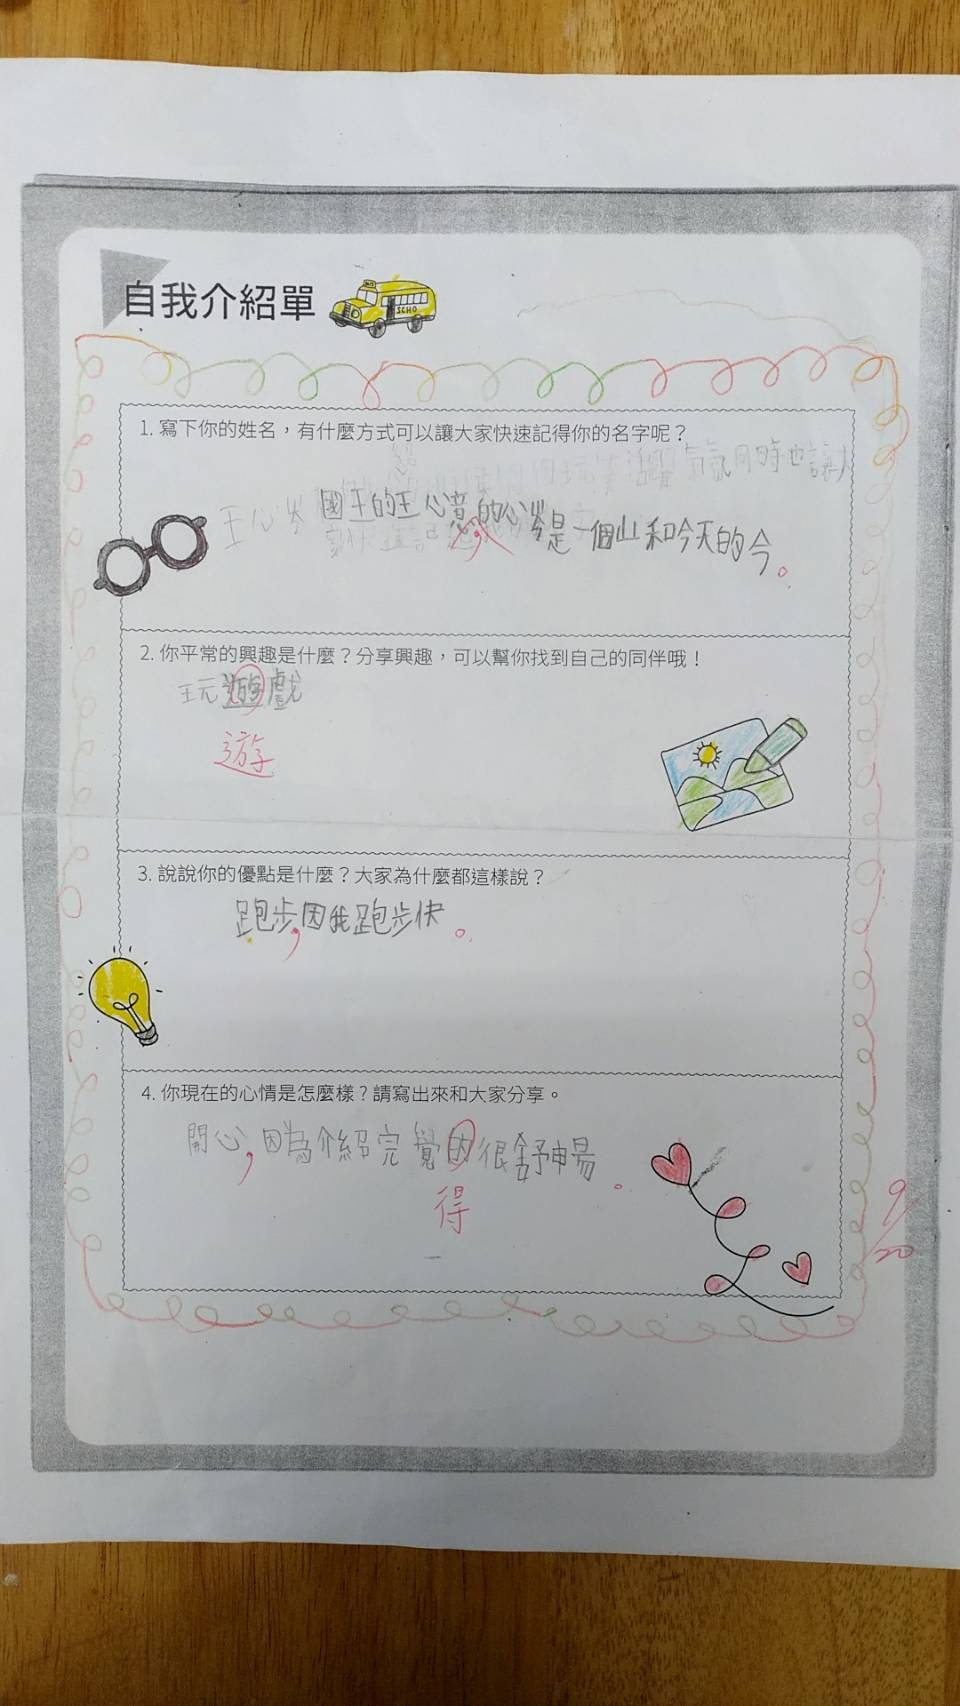 自我介紹單
SCHO
1. 寫下你的姓名，有什麼方式可以讓大家快速記得你的名字呢？
王心岑 國王的王心意的心，岑是一個山和今天的今。
2. 你平常的興趣是什麼？分享興趣，可以幫你找到自己的同伴哦！
玩遊戲
遊
3. 說說你的優點是什麼？大家為什麼都這樣說？
跑步，因我跑步快。
4. 你現在的心情是怎麼樣？請寫出來和大家分享。
開心，因為介紹完覺因很舒暢。
得
9/20